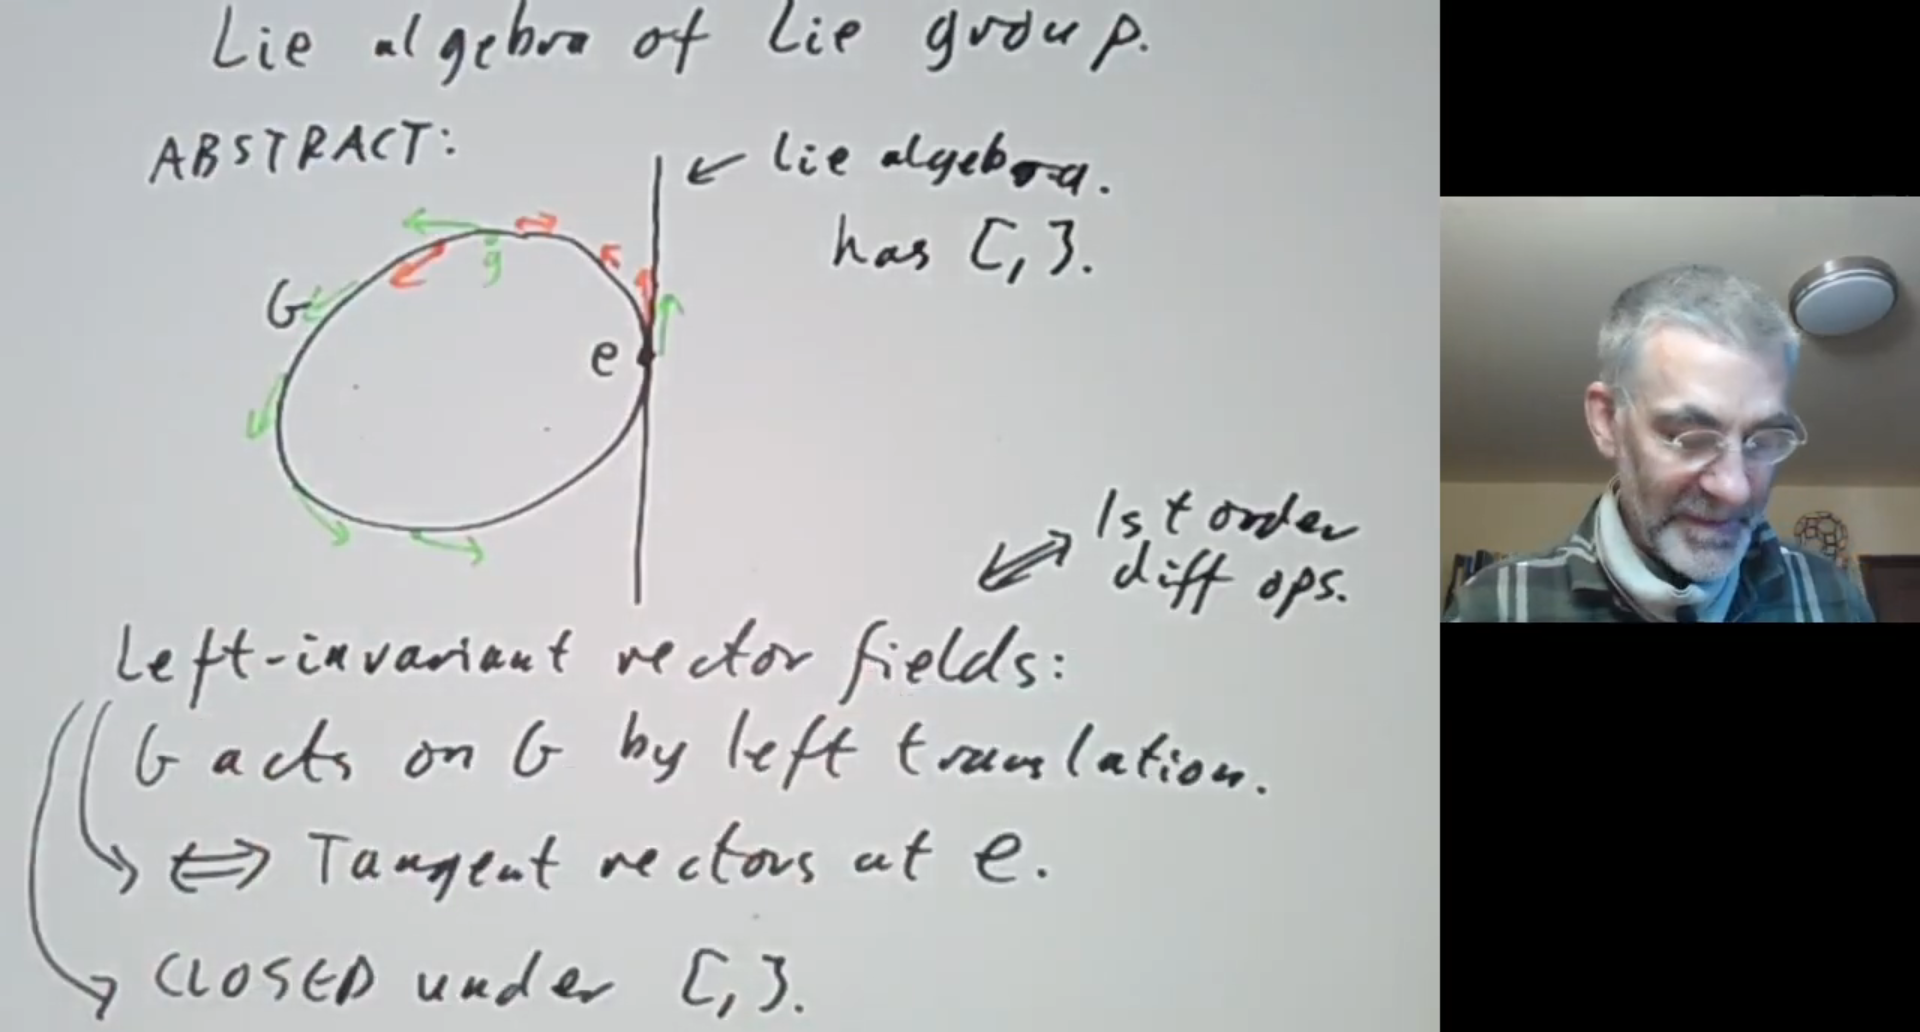 Lie algebra of Lie group.
ABSTRACT:
Lie algebra.
has [,].
g
G
e
1st order
diff ops.
Left-invariant vector fields:
G acts on G by left translation.
⇔ Tangent vectors at e.
CLOSED under [,].